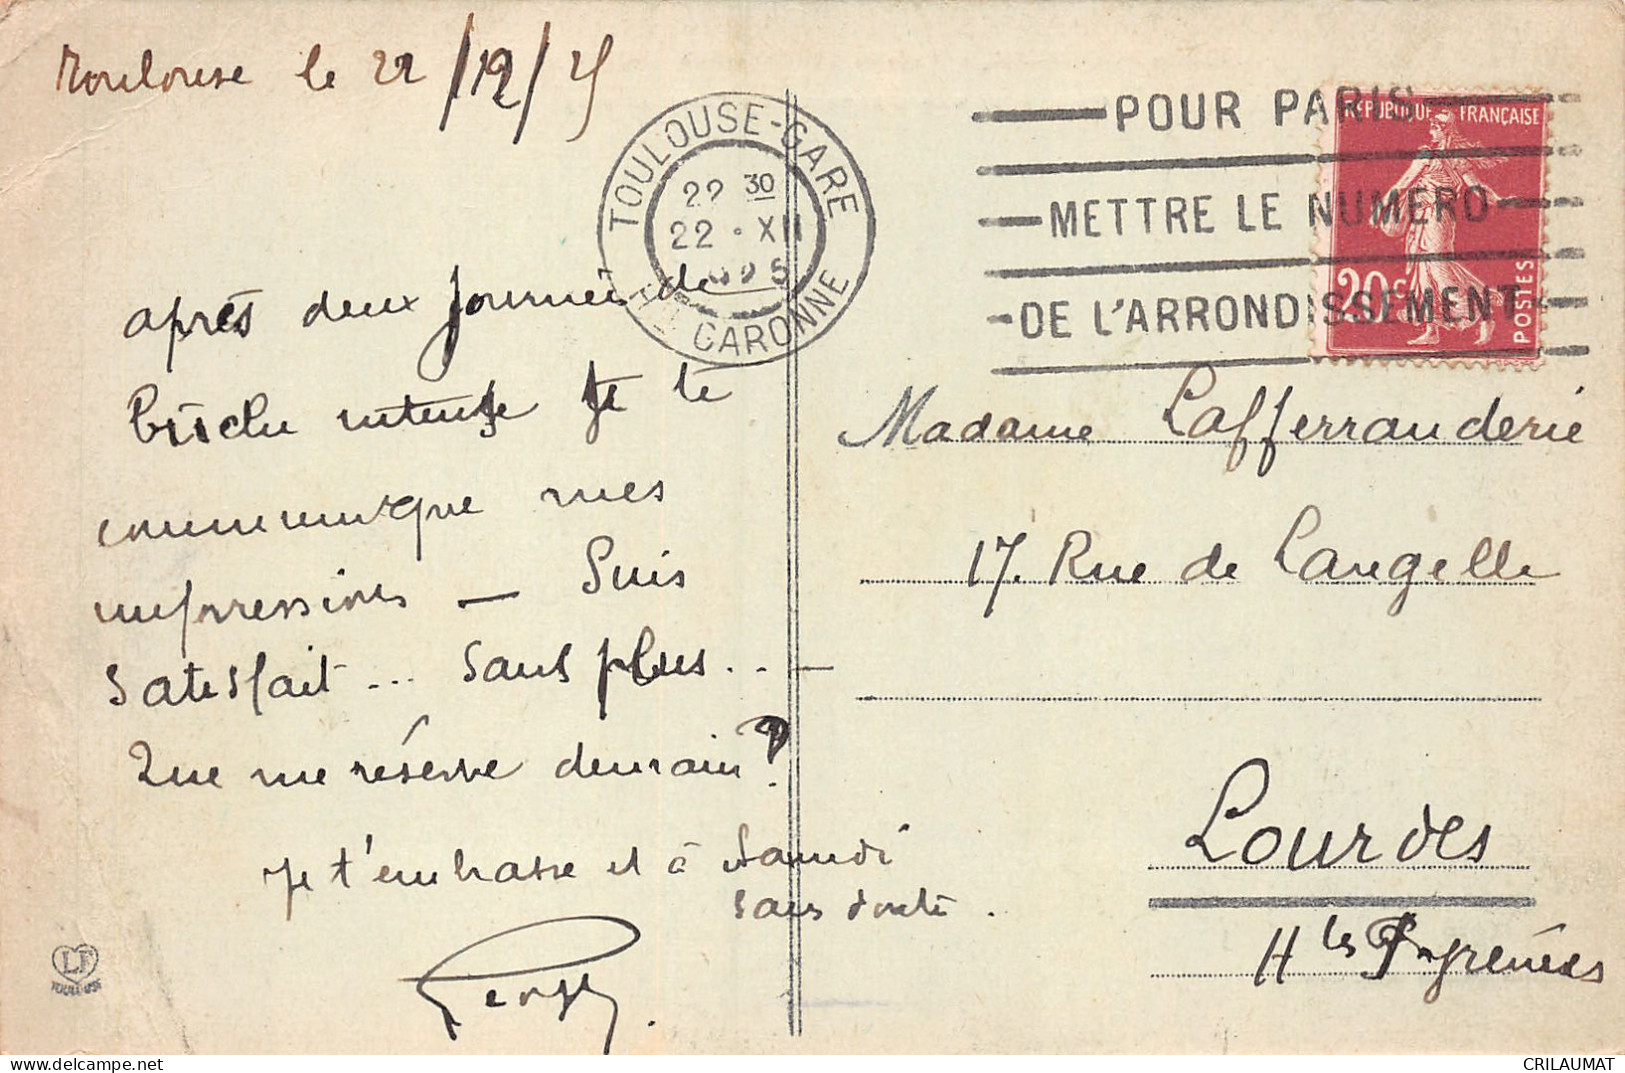 Toulouse le 22/12/25
TOULOUSE-GARE
22 30
22 · XII
Hte GARONNE
POUR PARIS
METTRE LE NUMERO
DE L'ARRONDISSEMENT
REPUBLIQUE FRANÇAISE
20c
POSTES
après deux journées de
intense je te
communique mes
impressions — Suis
satisfait ... sans plus .. —
Que me réserve demain ?
Je t'embrasse et à Samedi
sans doute .
Madame Lafferranderie
17. Rue de Langelle
Lourdes
Htes Pyrénées
LF
TOULOUSE
CRILAUMAT